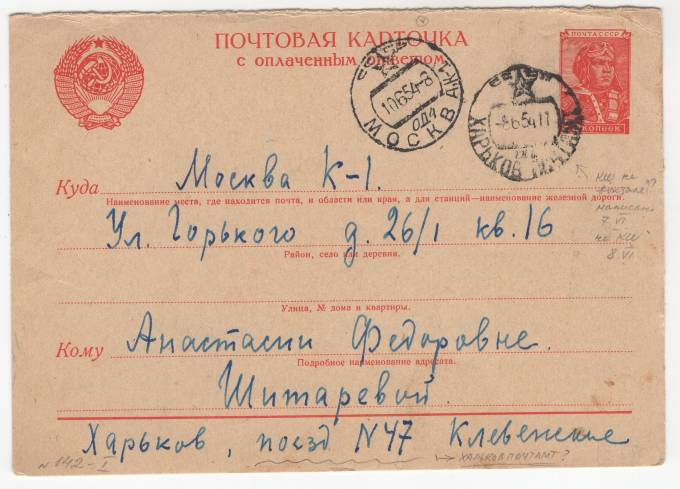 ПОЧТОВАЯ КАРТОЧКА
с оплаченным ответом
ПОЧТА СССР
КОПЕЕК
МОСКВА
10654-8
-8654 11
ХАРЬКОВ ПОЧТАМТ
Куда Москва К-1.
Наименование места, где находится почта, и области или края, а для станций—наименование железной дороги.
Ул. Горького д. 26/1 кв. 16
Район, село или деревня.
Улица, № дома и квартиры.
Кому Анастасии Федоровне.
Подробное наименование адресата.
Шитаревой
Харьков, поезд N47 Клевенские
КШ на
вокзале?
написано
7.VI
на КШ
8.VI
N 142-I
→ ХАРЬКОВ ПОЧТАМТ?